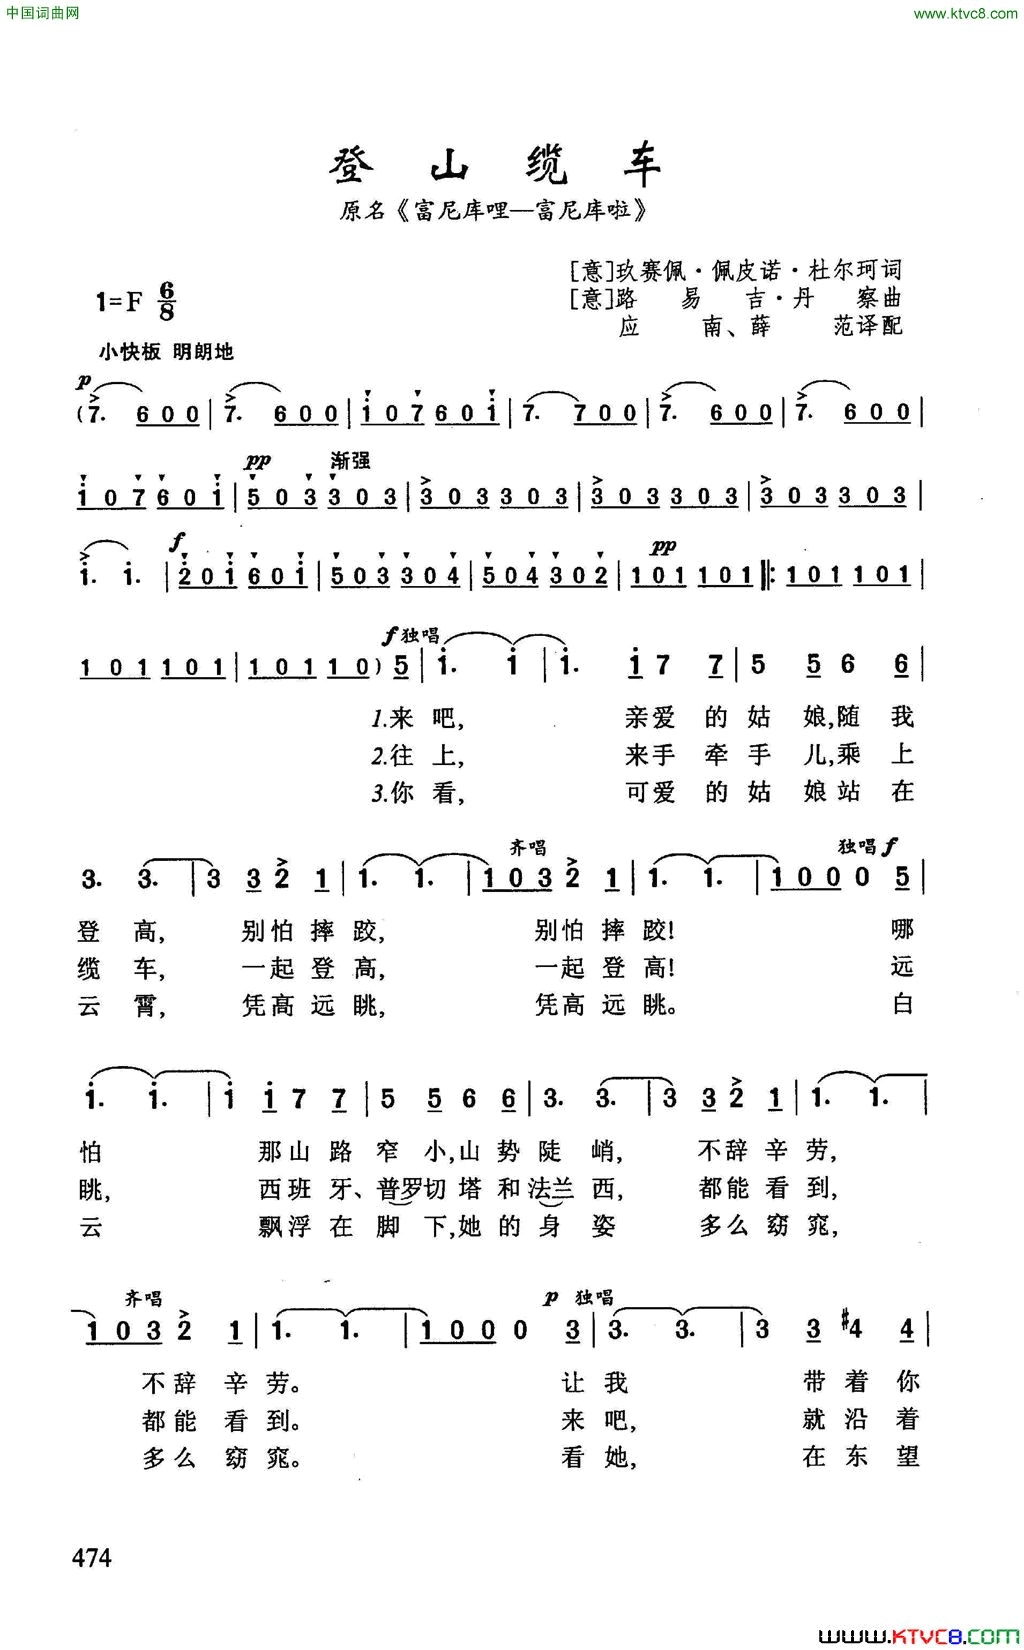 中国词曲网
www.ktvc8.com
登山缆车
原名《富尼库哩—富尼库啦》
[意]玖赛佩·佩皮诺·杜尔珂词
1=F 6/8
[意]路易吉·丹察曲
应南、薛范译配
小快板 明朗地
p
(7. 600 | 7. 600 | i07 60i | 7. 700 | 7. 600 | 7. 600 |
pp 渐强
i07 60i | 503 303 | 303 303 | 303 303 | 303 303 |
f pp
i. i. | 20i 60i | 503 304 | 504 302 | 101 101 ‖: 101 101 |
f 独唱
101 101 | 101 10) 5 | i. i | i. i 7 7 | 5 5 6 6 |
1.来吧, 亲爱的姑娘,随我
2.往上, 来手牵手儿,乘上
3.你看, 可爱的姑娘站在
齐唱 独唱 f
3. 3. | 3 3 2 1 | 1. 1. | 103 2 1 | 1. 1. | 100 0 5 |
登高, 别怕摔跤, 别怕摔跤! 哪
缆车, 一起登高, 一起登高! 远
云霄, 凭高远眺, 凭高远眺。 白
i. i. | i i 7 7 | 5 5 6 6 | 3. 3. | 3 3 2 1 | 1. 1. |
怕 那山路窄小,山势陡峭, 不辞辛劳,
眺, 西班牙、普罗切塔和法兰西, 都能看到,
云 飘浮在脚下,她的身姿 多么窈窕,
齐唱 p 独唱
103 2 1 | 1. 1. | 100 0 3 | 3. 3. | 3 3 #4 4 |
不辞辛劳。 让我 带着你
都能看到。 来吧, 就沿着
多么窈窕。 看她, 在东望
474
www.KTVC8.COM